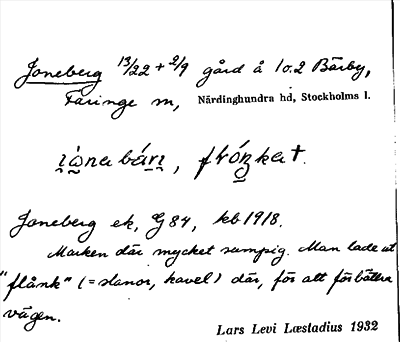 Joneberg 13/22 + 2/9 gård å 1 o. 2 Bärby,
Faringe sn, Närdinghundra hd, Stockholms l.
Joneberg ek, G 84, kb 1918.
Marken där mycket sumpig. Man lade ut
"flånk" (= slanor, kavel) där, för att förbättra
vägen.
Lars Levi Læstadius 1932